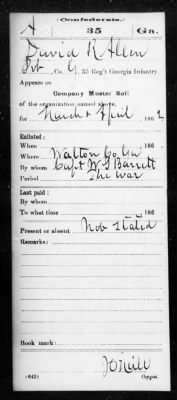 Confederate.
A 35 Ga.
David R Allen
Pvt, Co. C, 35 Reg't Georgia Infantry
Appears on
Company Muster Roll
of the organization named above,
for March & April, 1862
Enlisted:
When 186
Where Walton Co Ga
By whom Capt W S Barrett
Period The War
Last paid:
By whom
To what time 186
Present or absent Not Stated
Remarks:
Book mark:
(642)
J O Neill
Copyist.